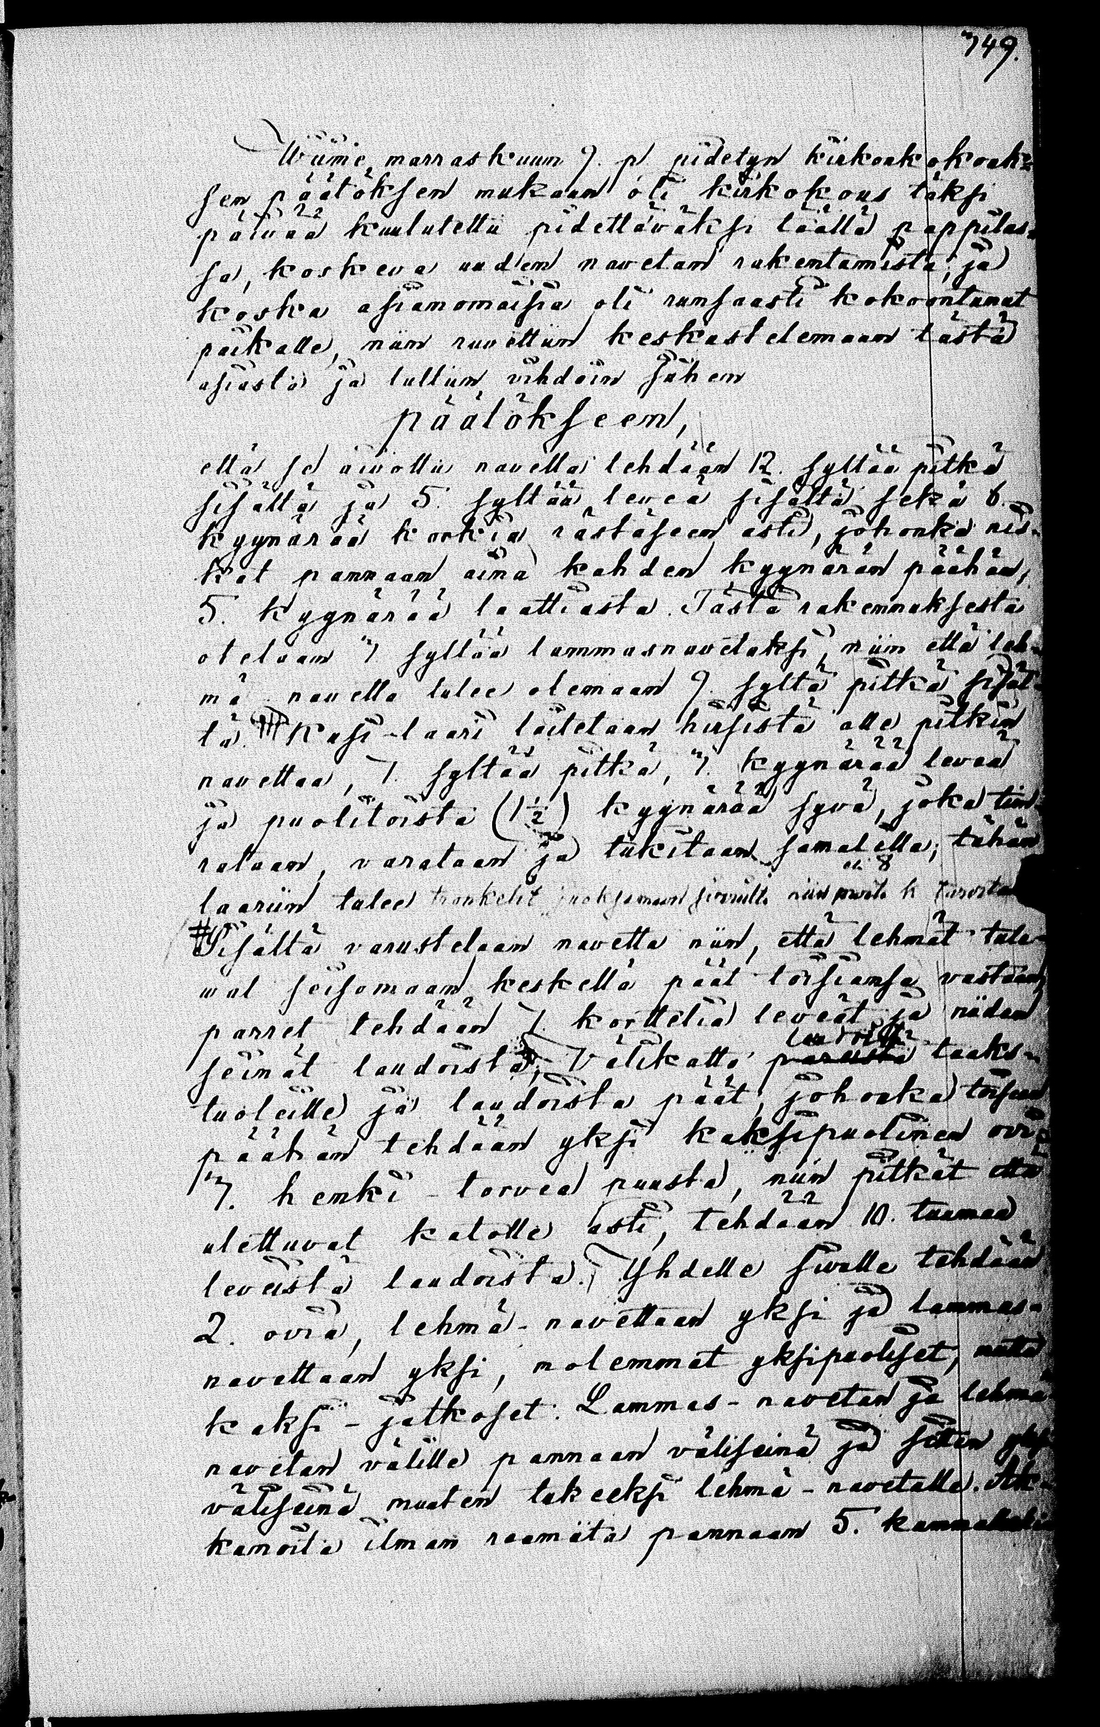 749.
Wiime marraskuun 9. p. pidetyn kirkonkokouk-
sen päätöksen mukaan oli kirkokous täksi
päivää kuulutettu pidettäväksi täällä pappilas-
sa, koskeva uuden navetan rakentamista; ja
koska asianomaisia oli runsaasti kokoontunut
paikalle, niin ruvettiin keskustelemaan tästä
asiasta ja tultiin vihdoin siihen
päätökseen,
että se aivottu navetta tehdään 12. syltää pitkä
sisältä ja 5. syltää leveä sisältä sekä 6.
kyynärää korkia rästäseen asti, johonka nis-
kat pannaan aina kahden kyynärän päähän,
5. kyynärää laattiasta. Tästä rakennuksesta
otetaan syltää lammasnavetaksi, niin että leh-
mä navetta tulee olemaan 9. syltä pitkä sisäl-
tä. Kusi-laari laitetaan hirsistä alle pitkin
navettaa, 7. syltää pitkä, kyynärää leveä
ja puolitoista (1½) kyynärää syvä, joka tim-
rataan, varataan ja tukitaan samalella; tähän
laariin tulee trankelit juoksemaan
# Sisältä varustetaan navetta niin, että lehmät tule-
wat seisomaan keskellä päät toisiansa vastaan,
parret tehdään 7. korttelia leveät ja niiden
laudoista
seinät laudoista; Välikatto taaks-
tuoleille ja laudoista päät, johonka toiseen
päähän tehdään yksi kaksipuolinen ovi
7. henki-torvea puusta, niin pitkät että
ulettuvat katolle asti, tehdään 10. tuumaa
leveistä laudoista. Yhdelle sivulle tehdään
2. ovia, lehmä-navettaan yksi ja lammas-
navettaan yksi, molemmat yksipuoliset, mutta
kaksi-jatkoset. Lammas-navetan ja lehmä
navetan välille pannaan väliseinä ja sitten yksi
väliseinä muuten takeeksi lehmä-navetalle. Ak-
kunoita ilman raamita pannaan 5.